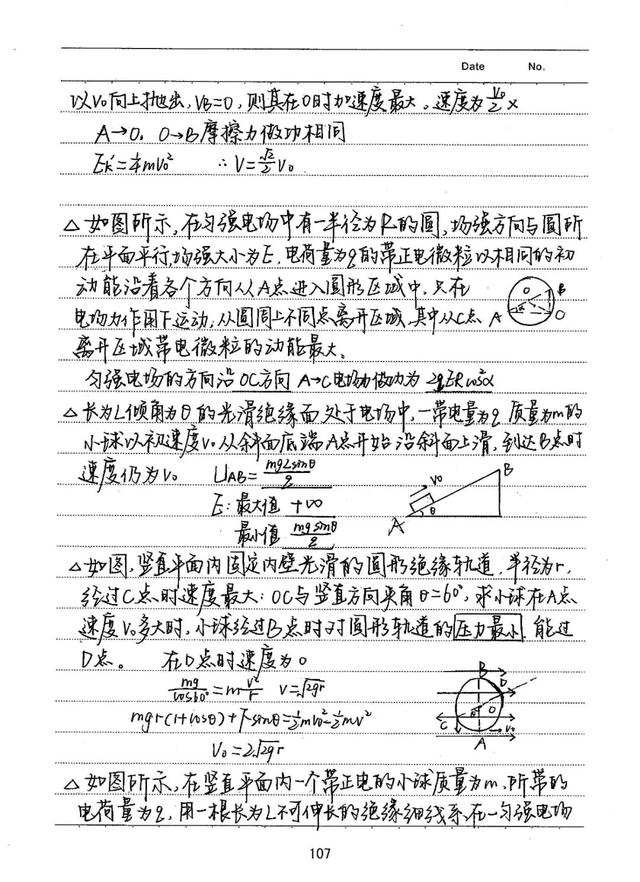 Date No.
以V₀向上抛出,VB=0,则其在O时加速度最大。速度为V₀/2 ×
A→O、O→B摩擦力做功相同
Ek'=1/4mV₀² ∴V=√2/2 V₀
△如图所示,在匀强电场中有一半径为R的圆,场强方向与圆所
在平面平行,场强大小为E,电荷量为q的带正电微粒以相同的初
动能沿着各个方向从A点进入圆形区域中,只在
电场力作用下运动,从圆周上不同点离开区域,其中从C点
离开区域带电微粒的动能最大。
匀强电场的方向沿OC方向 A→C电场力做功为 2qERcos²α
△长为L倾角为θ的光滑绝缘面处于电场中,一带电量为q 质量为m的
小球以初速度V₀从斜面底端A点开始沿斜面上滑,到达B点时
速度仍为V₀ UAB=mgLsinθ/q
E:最大值 +∞
最小值 mgsinθ/q
△如图,竖直平面内固定内壁光滑的圆形绝缘轨道,半径为r,
经过C点时速度最大:OC与竖直方向夹角θ=60°,求小球在A点
速度V₀多大时,小球经过B点时对圆形轨道的压力最小,能过
D点。 在D点时速度为0
mg/cos60°=m v²/r V=√2gr
mgr(1+cosθ)+Fsinθ=1/2mV₀²-1/2mV²
V₀=2√2gr
△如图所示,在竖直平面内一个带正电的小球质量为m,所带的
电荷量为q,用一根长为L不可伸长的绝缘细线系在一匀强电场
107